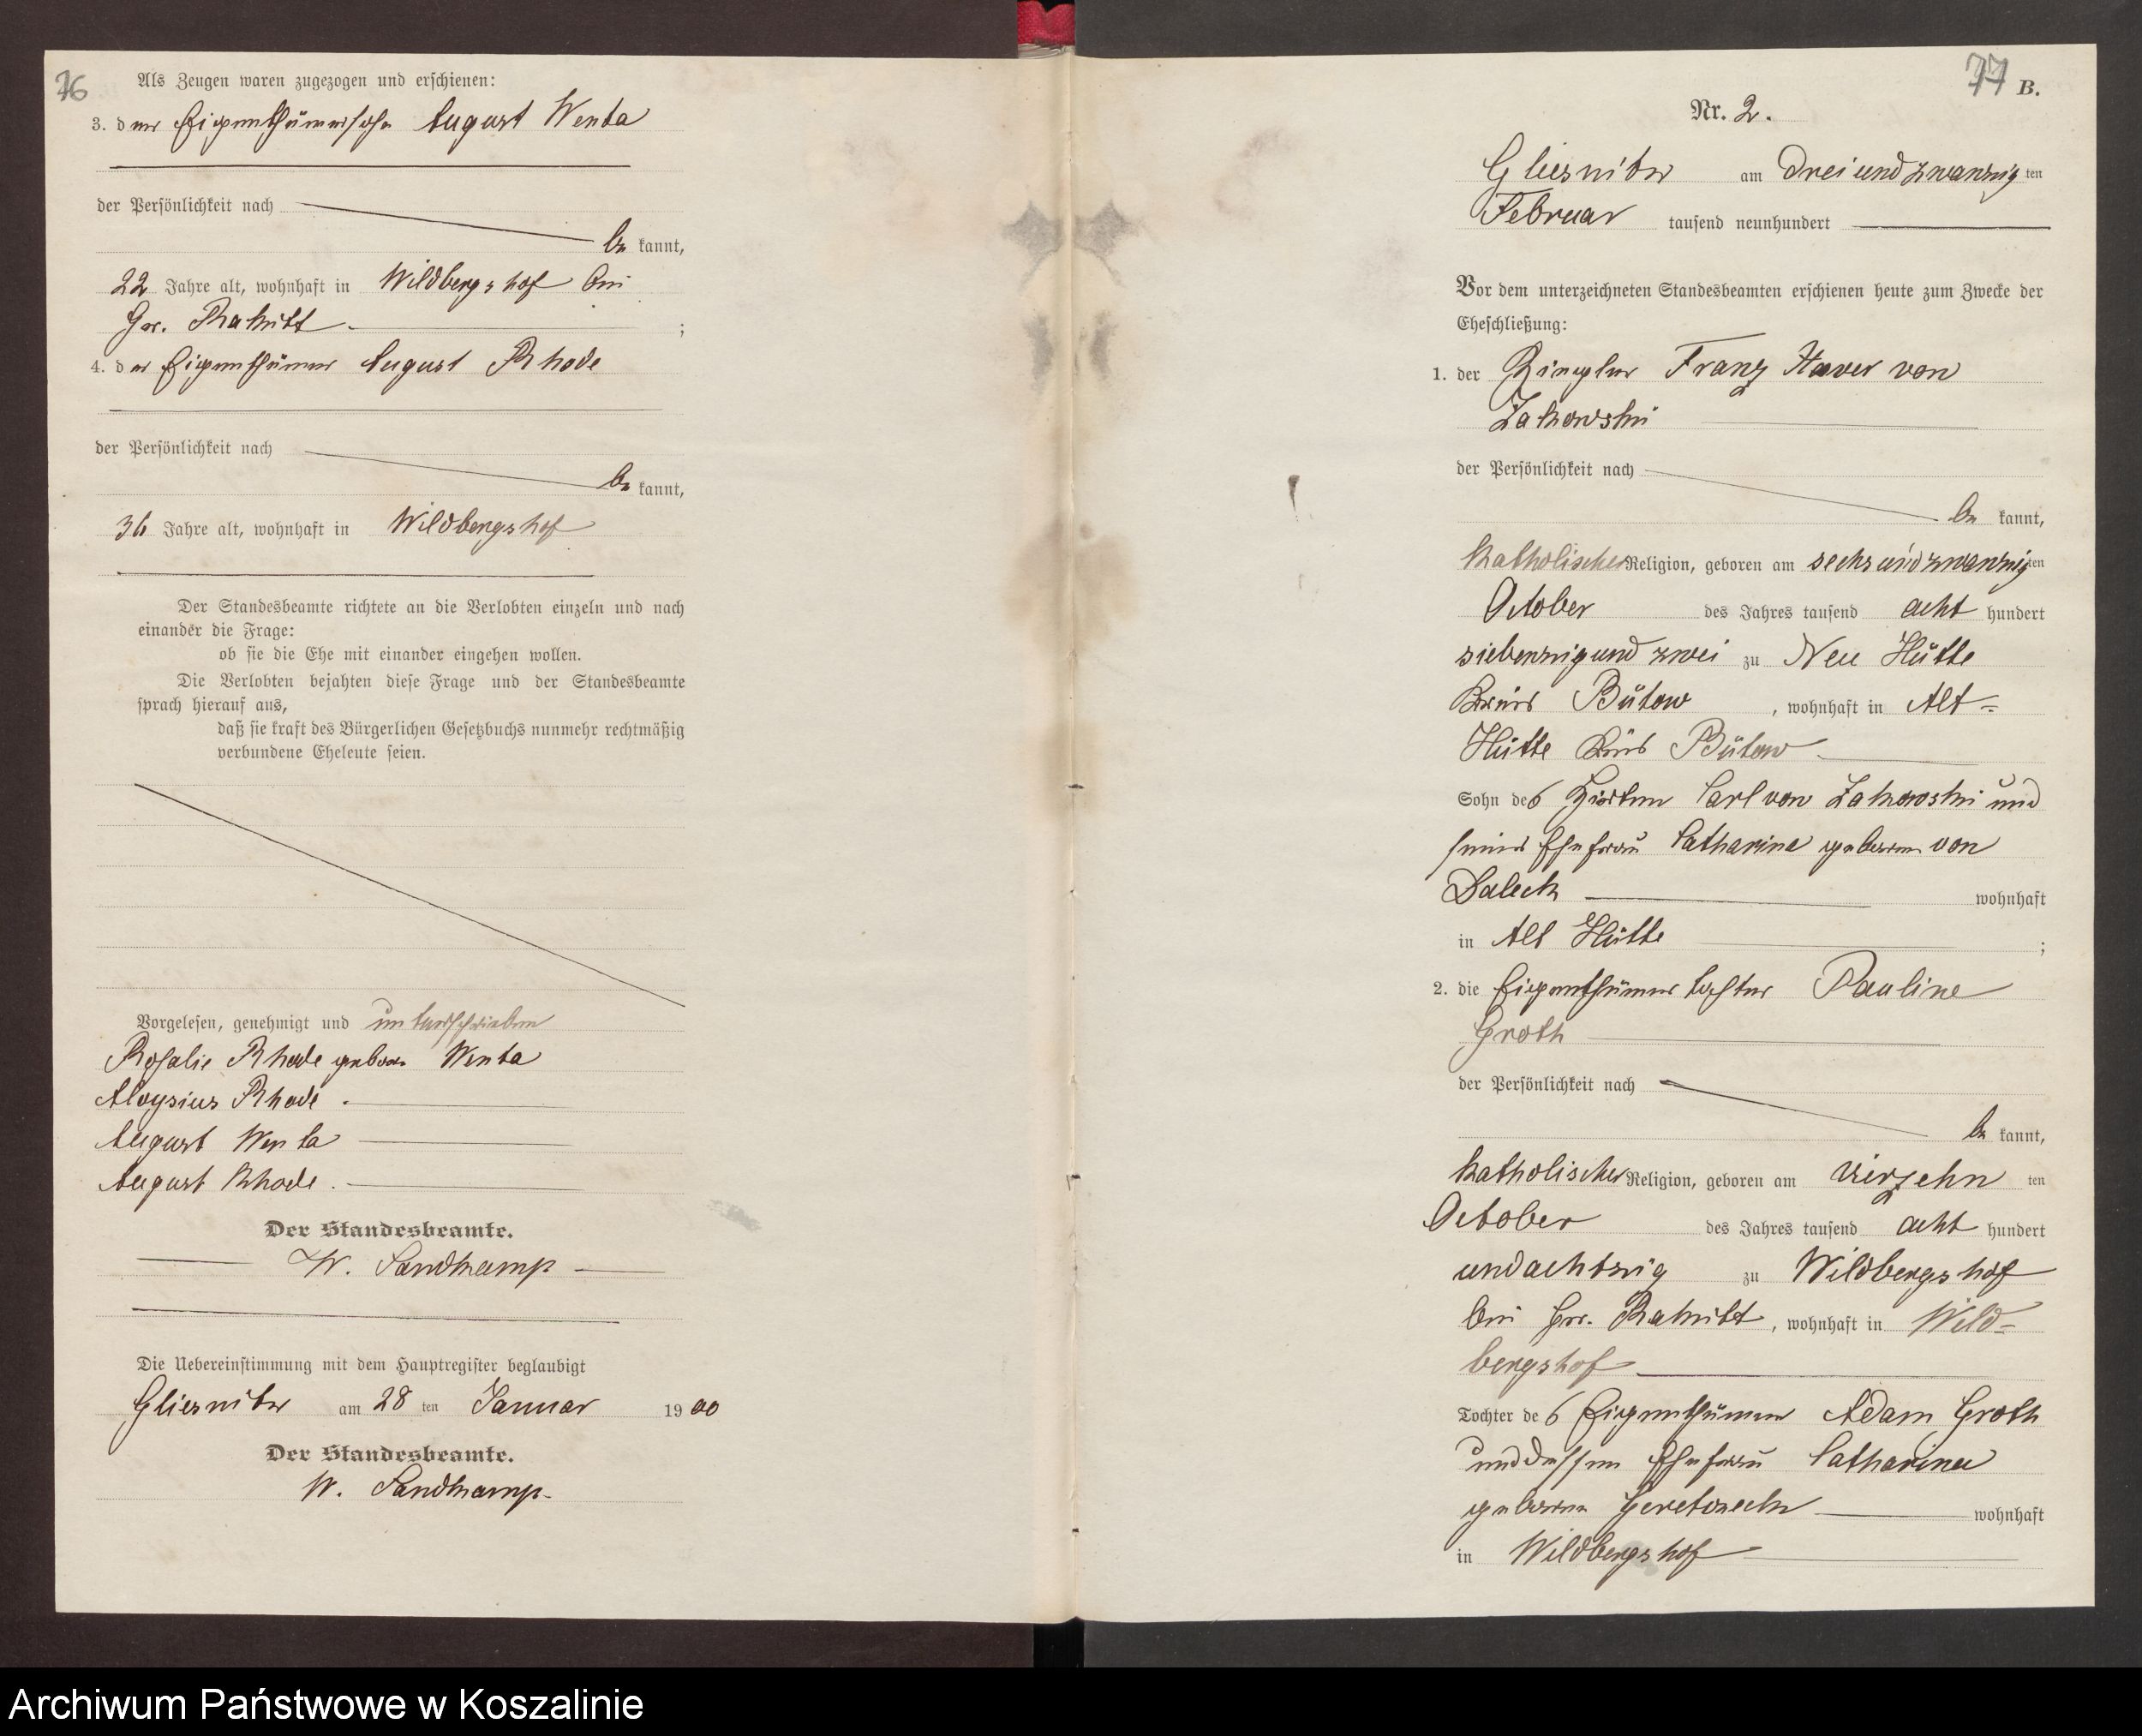 76
Als Zeugen waren zugezogen und erschienen:
3. der Eigenthümersohn August Wenta
der Persönlichkeit nach
be kannt,
22 Jahre alt, wohnhaft in Wildbergshof bei
Gr. Rakitt
;
4. der Eigenthümer August Rhode
der Persönlichkeit nach
be kannt,
36 Jahre alt, wohnhaft in Wildbergshof
Der Standesbeamte richtete an die Verlobten einzeln und nach
einander die Frage:
ob sie die Ehe mit einander eingehen wollen.
Die Verlobten bejahten diese Frage und der Standesbeamte
sprach hierauf aus,
daß sie kraft des Bürgerlichen Gesetzbuchs nunmehr rechtmäßig
verbundene Eheleute seien.
Vorgelesen, genehmigt und unterschrieben
Rosalie Rhode geborn Wenta
Aloysius Rhode.
August Wenta
August Rhode.
Der Standesbeamte.
W. Sandkamp
Die Uebereinstimmung mit dem Hauptregister beglaubigt
Gliesnitz am 28 ten Januar 1900
Der Standesbeamte.
W. Sandkamp.
77 B.
Nr. 2.
Gliesnitz am Drei und zwanzig ten
Februar tausend neunhundert
Vor dem unterzeichneten Standesbeamten erschienen heute zum Zwecke der
Eheschließung:
1. der Ziegler Franz Xaver von
Zakowski
der Persönlichkeit nach
be kannt,
katholischer Religion, geboren am sechs und zwanzig ten
October des Jahres tausend acht hundert
siebenzig und zwei zu Neu Hütte
Kreis Bütow, wohnhaft in Alt-
Hütte Kreis Bütow
Sohn des Hirten Carl von Zakowski und
seiner Ehefrau Catharina geboren von
wohnhaft
in Alt Hütte ;
2. die Eigenthümertochter Pauline
Groth
der Persönlichkeit nach
be kannt,
katholischer Religion, geboren am vierzehn ten
October des Jahres tausend acht hundert
und achtzig zu Wildbergshof
bei Gr. Rakitt, wohnhaft in Wild-
bergshof
Tochter des Eigenthümer Adam Groth
und dessen Ehefrau Catharina
geboren wohnhaft
in Wildbergshof
Archiwum Państwowe w Koszalinie